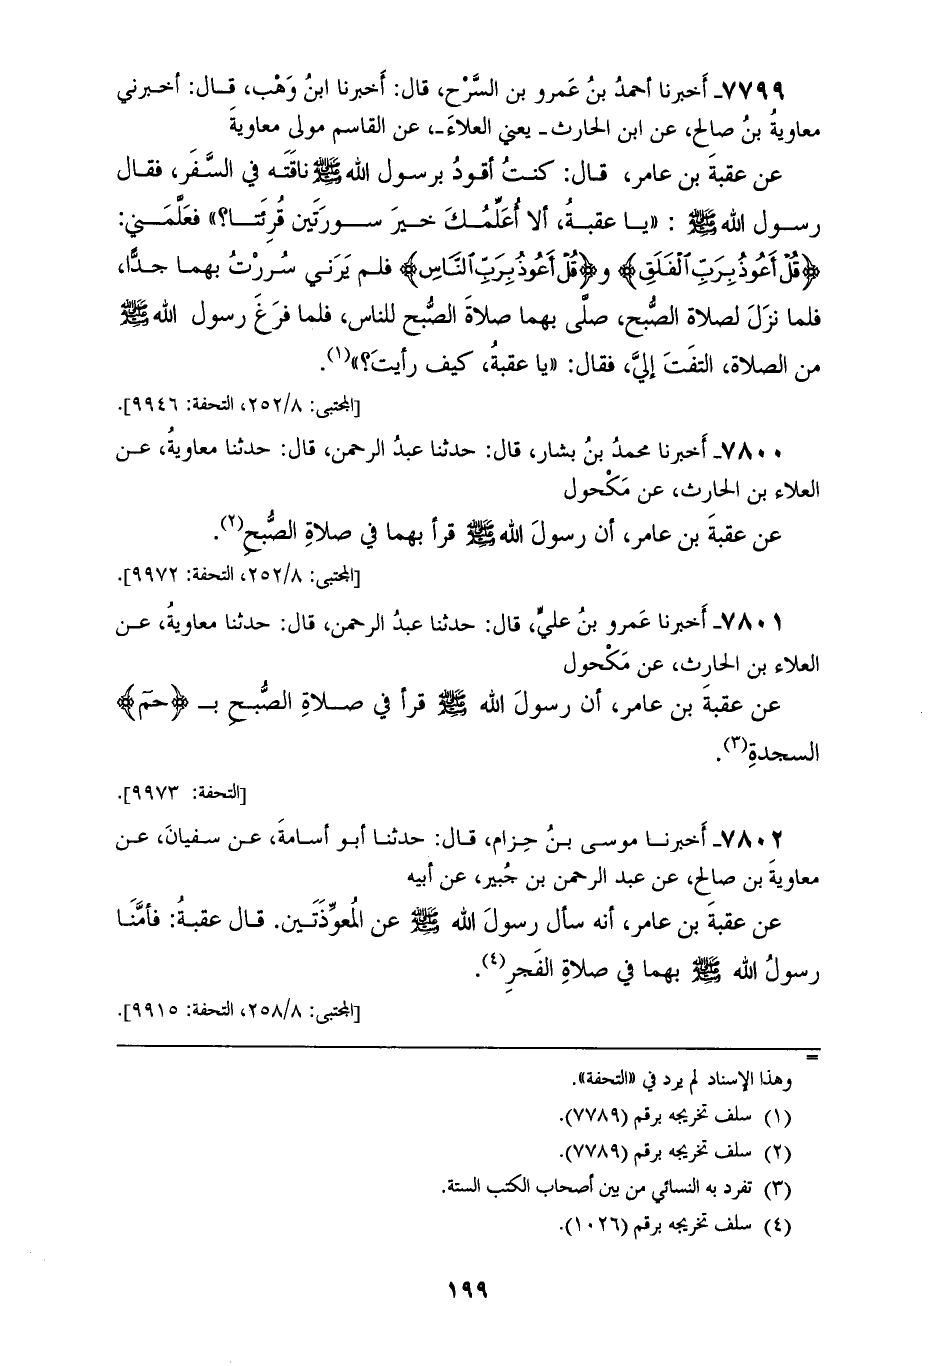 ٧٧٩٩ـ أَخبرنا أحمدُ بنُ عَمرو بن السَّرْح، قال: أَخبرنا ابنُ وَهْب، قـال: أخـبرني
معاويةُ بنُ صالح، عن ابن الحارث ـ يعني العلاءَ ـ، عن القاسم مولى معاويةَ
عن عقبةَ بن عامر، قـال: كنـتُ أقودُ برسـول الله ﷺ ناقَتَـه في السَّفَر، فقـال
رسـول الله ﷺ : «يـا عقبـةُ، ألا أُعَلِّمُـكَ خـيرَ سـورَتَين قُرِئَتـا؟» فعَلَّمَـني:
﴿قُلْ أَعُوذُ بِرَبِّ ٱلْفَلَقِ﴾ و﴿قُلْ أَعُوذُ بِرَبِّ ٱلنَّاسِ﴾ فلـم يَرَني سُـرِرْتُ بهمـا جـدًّا،
فلما نزَلَ لصلاة الصُّبح، صلَّى بهما صلاةَ الصُّبح للناس، فلما فرَغَ رسول الله ﷺ
من الصلاة، التفَتَ إليَّ، فقال: «يا عقبةُ، كيف رأيتَ؟»(١).
[المجتبى: ٢٥٢/٨، التحفة: ٩٩٤٦].
٧٨٠٠ـ أَخبرنا محمدُ بنُ بشار، قال: حدثنا عبدُ الرحمن، قال: حدثنا معاويةُ، عـن
العلاء بن الحارث، عن مَكْحول
عن عقبةَ بن عامر، أن رسولَ الله ﷺ قرأ بهما في صلاةِ الصُّبحِ(٢).
[المجتبى: ٢٥٢/٨، التحفة: ٩٩٧٢].
٧٨٠١ـ أَخبرنا عَمرو بنُ عليٍّ، قال: حدثنا عبدُ الرحمن، قال: حدثنا معاويةُ، عـن
العلاء بن الحارث، عن مَكْحول
عن عقبةَ بن عامر، أن رسولَ الله ﷺ قرأ في صـلاةِ الصُّبـحِ بـ ﴿حمٓ﴾
السجدةِ(٣).
[التحفة: ٩٩٧٣].
٧٨٠٢ـ أَخبرنـا موسـى بـنُ حِـزام، قـال: حدثنـا أبـو أسـامةَ، عـن سـفيانَ، عـن
معاويةَ بن صالح، عن عبد الرحمن بن جُبير، عن أبيه
عن عقبةَ بن عامر، أنه سأل رسولَ الله ﷺ عن المُعوِّذَتَـين. قـال عقبـةُ: فأمَّنَـا
رسولُ الله ﷺ بهما في صلاةِ الفَجرِ(٤).
[المجتبى: ٢٥٨/٨، التحفة: ٩٩١٥].
=
وهذا الإسناد لم يرد في «التحفة».
(١) سلف تخريجه برقم (٧٧٨٩).
(٢) سلف تخريجه برقم (٧٧٨٩).
(٣) تفرد به النسائي من بين أصحاب الكتب الستة.
(٤) سلف تخريجه برقم (١٠٢٦).
١٩٩